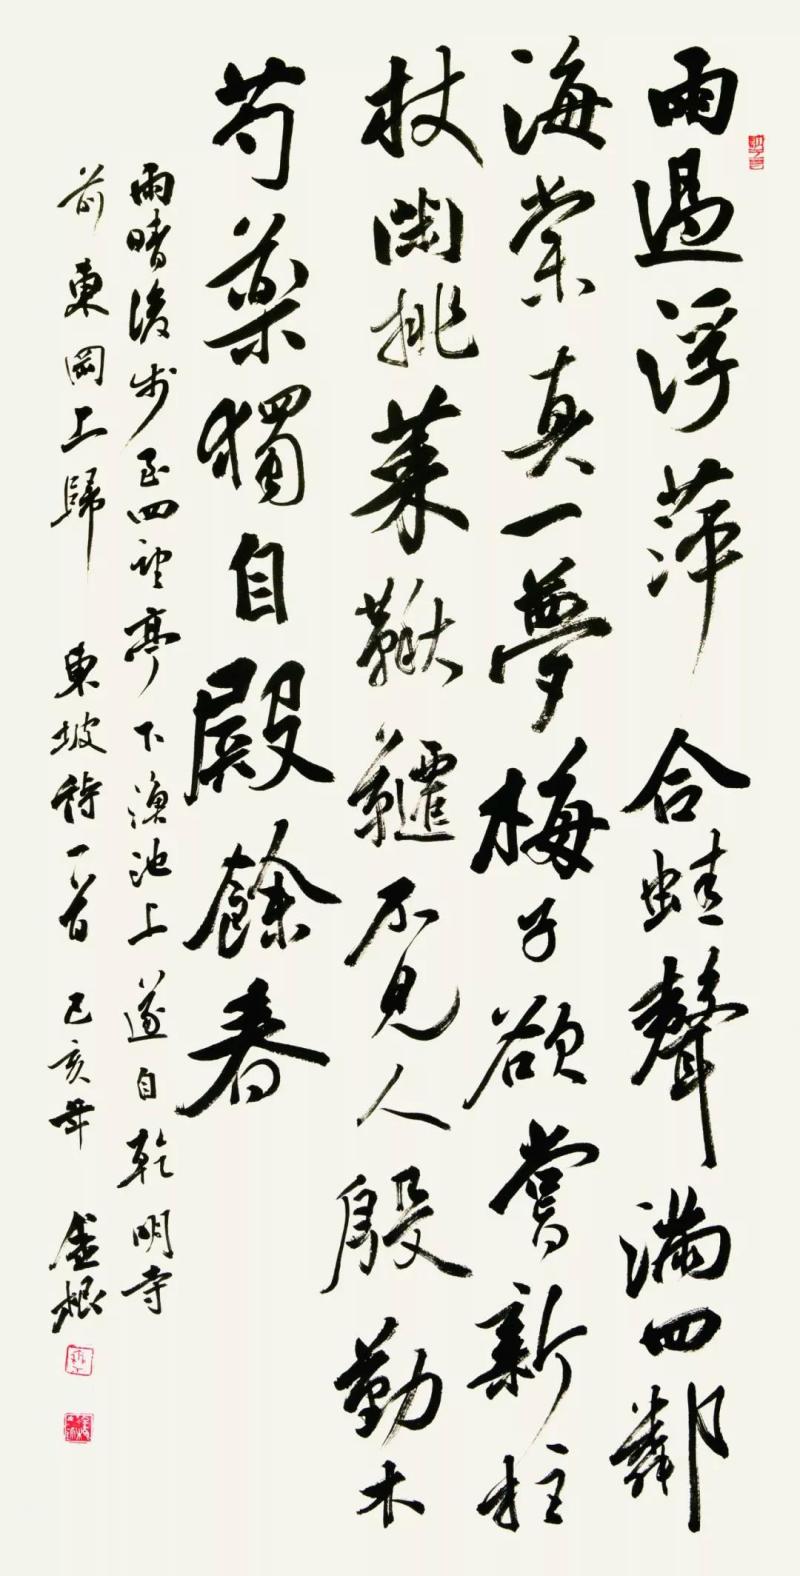 雨過浮萍合蛙聲滿四鄰
海棠真一夢梅子欲嘗新柱
杖閑挑菜鞦韆不見人殷勤木
芍藥獨自殿餘春
雨晴後步至四望亭下漁池上遂自乾明寺
前東岡上歸 東坡詩一首 己亥年 金根